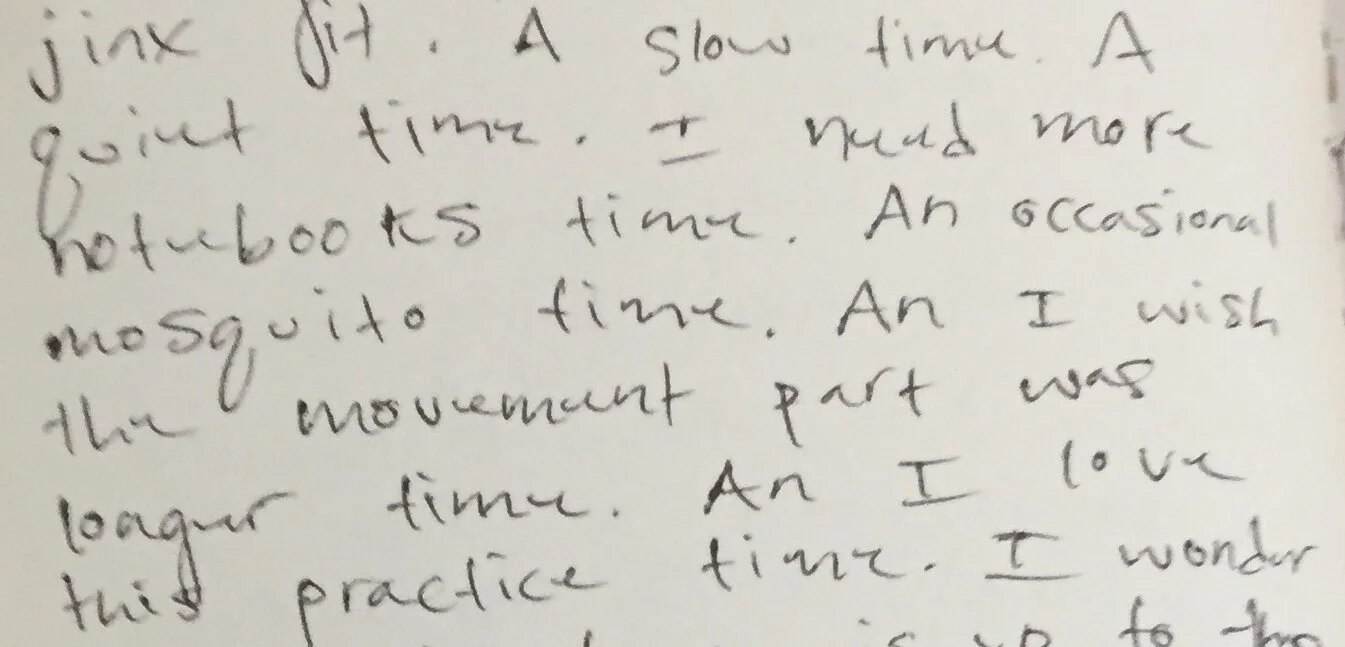 jinx fit. A slow time. A
quiet time. I need more
notebooks time. An occasional
mosquito time. An I wish
the movement part was
longer time. An I love
this practice time. I wonder
is up to the